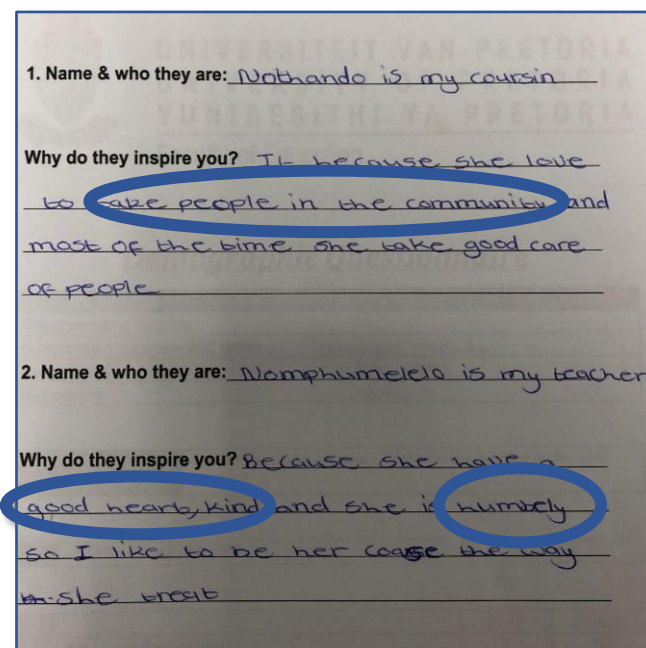 UNIVERSITEIT VAN PRETORIA
UNIVERSITY OF PRETORIA
YUNIBESITHI YA PRETORIA
1. Name & who they are: Nothando is my coursin
Why do they inspire you? It because she love
to take people in the community and
most of the time she take good care
of people
Demographic Questionnaire
2. Name & who they are: Nomphumelelo is my teacher
Why do they inspire you? Because she have a
good heart, kind and she is humbely
so I like to be her coase the way
she treat